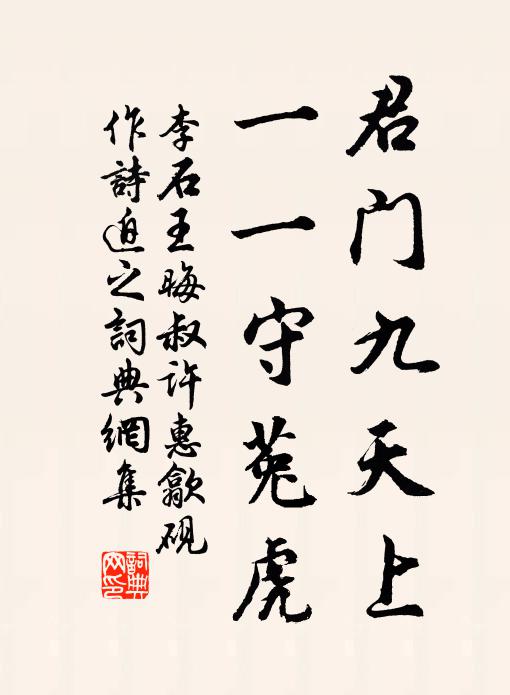 君门九天上
一一守菟虎
李石王晦叔许惠歙砚
作詩迫之詞典網集
詞典
网印